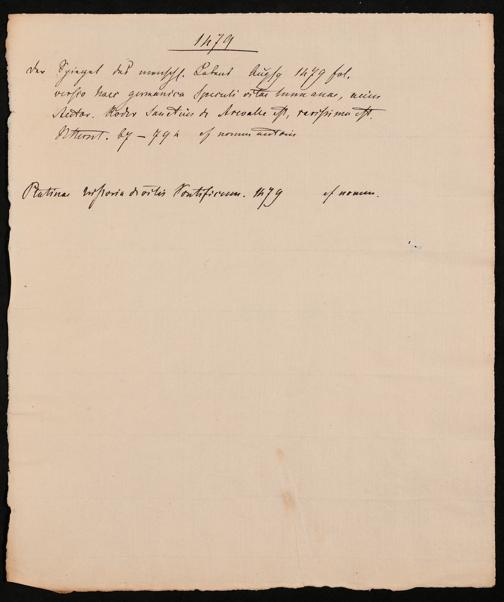 1479
Der Spiegel des menschl. Lebens Augsp 1479 fol.
versio haec germanica Speculi vitae humanae, cuius
Auctor. Roder Sanctius de Arevallo est, rarissima est.
67 – 79 cf nomen autoris
Platina Historia de vitis Pontificum. 1479 cf nomen.